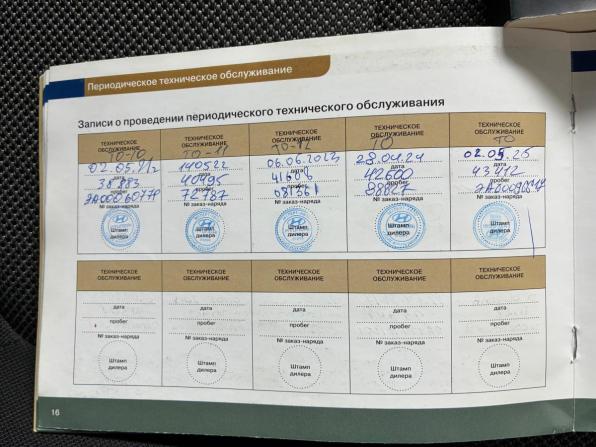 Периодическое техническое обслуживание
Записи о проведении периодического технического обслуживания
ТЕХНИЧЕСКОЕ ОБСЛУЖИВАНИЕ
ТО-10
дата
38 883
пробег
№ заказ-наряда
Штамп дилера
ТЕХНИЧЕСКОЕ ОБСЛУЖИВАНИЕ
ТО-11
дата
40495
пробег
72787
№ заказ-наряда
Штамп дилера
ТЕХНИЧЕСКОЕ ОБСЛУЖИВАНИЕ
ТО-12
дата
41606
пробег
081361
№ заказ-наряда
Штамп дилера
ТЕХНИЧЕСКОЕ ОБСЛУЖИВАНИЕ
ТО
28.04.24
дата
42600
пробег
№ заказ-наряда
Штамп дилера
ТЕХНИЧЕСКОЕ ОБСЛУЖИВАНИЕ
ТО
02.05.25
дата
43412
пробег
№ заказ-наряда
Штамп дилера
ТЕХНИЧЕСКОЕ ОБСЛУЖИВАНИЕ
дата
пробег
№ заказ-наряда
Штамп дилера
ТЕХНИЧЕСКОЕ ОБСЛУЖИВАНИЕ
дата
пробег
№ заказ-наряда
Штамп дилера
ТЕХНИЧЕСКОЕ ОБСЛУЖИВАНИЕ
дата
пробег
№ заказ-наряда
Штамп дилера
ТЕХНИЧЕСКОЕ ОБСЛУЖИВАНИЕ
дата
пробег
№ заказ-наряда
Штамп дилера
ТЕХНИЧЕСКОЕ ОБСЛУЖИВАНИЕ
дата
пробег
№ заказ-наряда
Штамп дилера
16